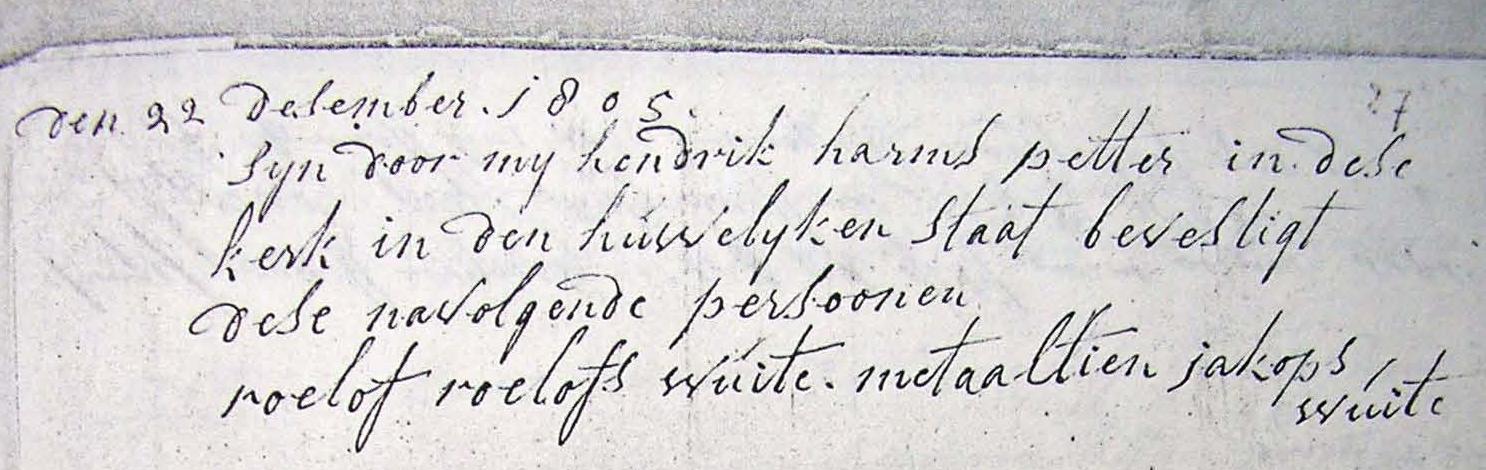 27
den 22 desember. 1805.
syn door my hendrik harms petter in dese
kerk in den huwelyken staat bevestigt
dese navolgende persoonen
roelof roelofs wuite. met aaltien jakops
wuite